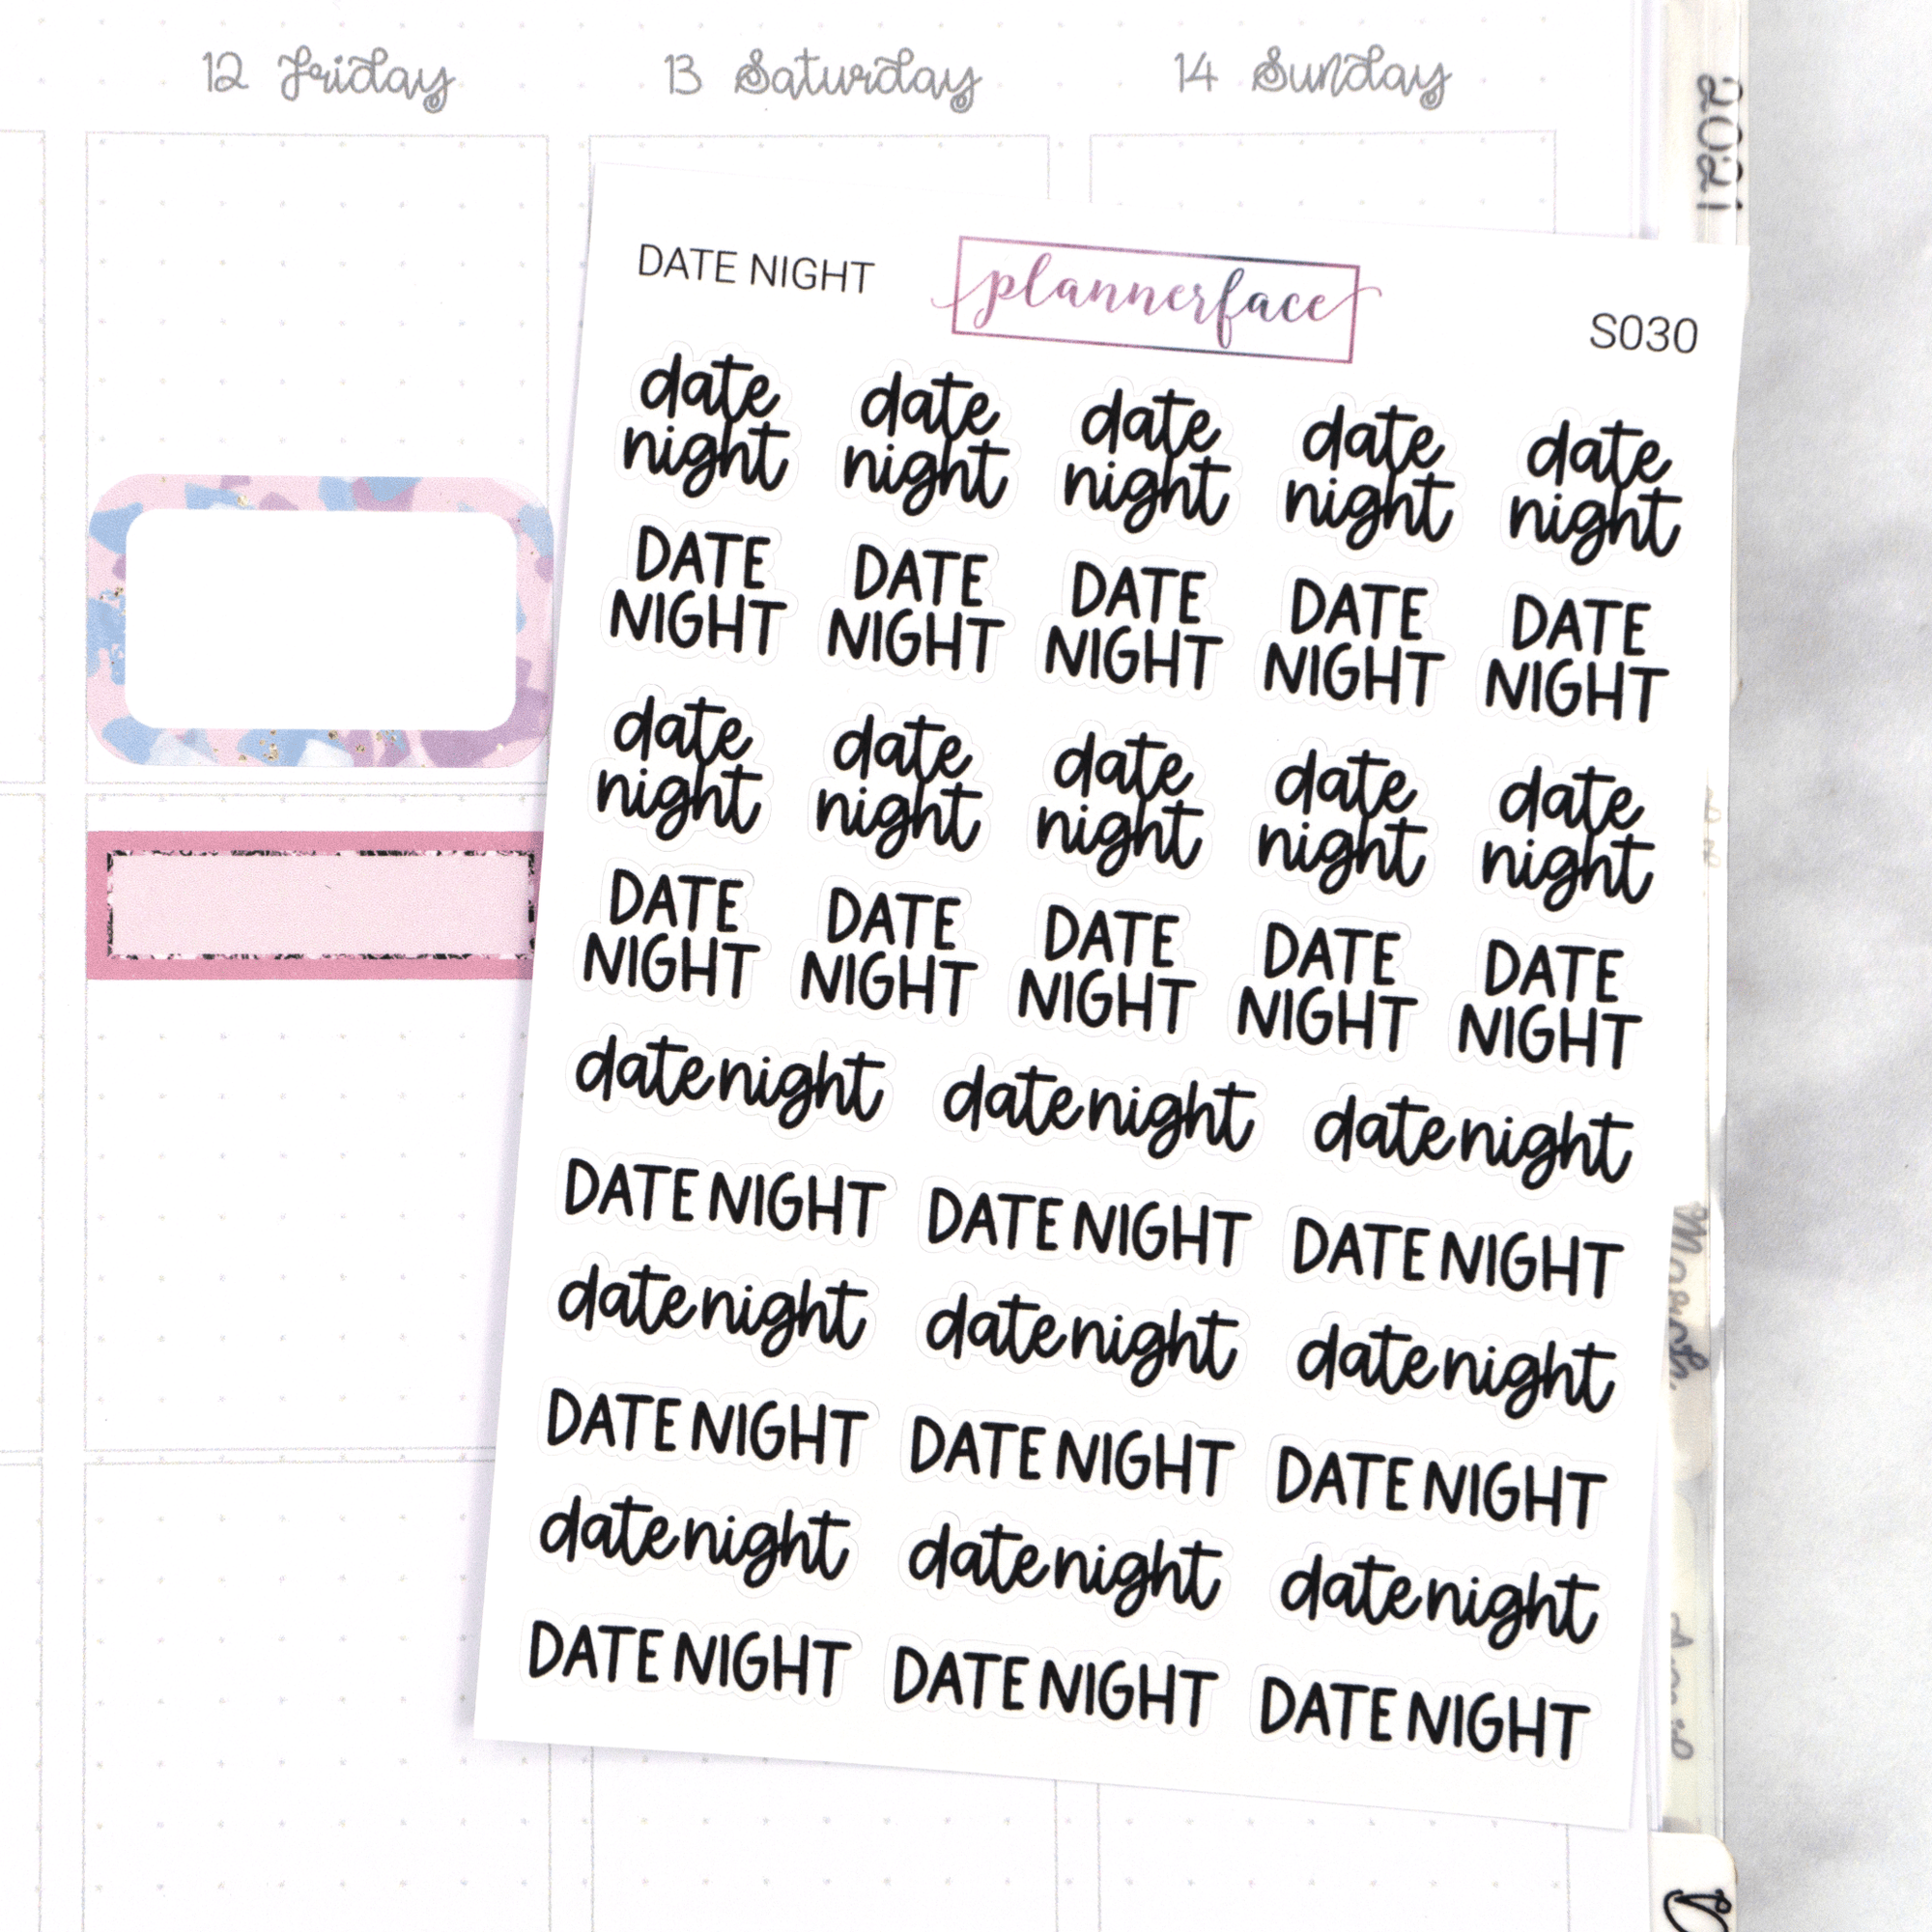 12 Friday 13 Saturday 14 Sunday
2021
DATE NIGHT plannerface S030
date date date date date
night night night night night
DATE DATE DATE DATE DATE
NIGHT NIGHT NIGHT NIGHT NIGHT
date date date date date
night night night night night
DATE DATE DATE DATE DATE
NIGHT NIGHT NIGHT NIGHT NIGHT
date night date night date night
DATE NIGHT DATE NIGHT DATE NIGHT
date night date night date night
DATE NIGHT DATE NIGHT DATE NIGHT
date night date night date night
DATE NIGHT DATE NIGHT DATE NIGHT
March